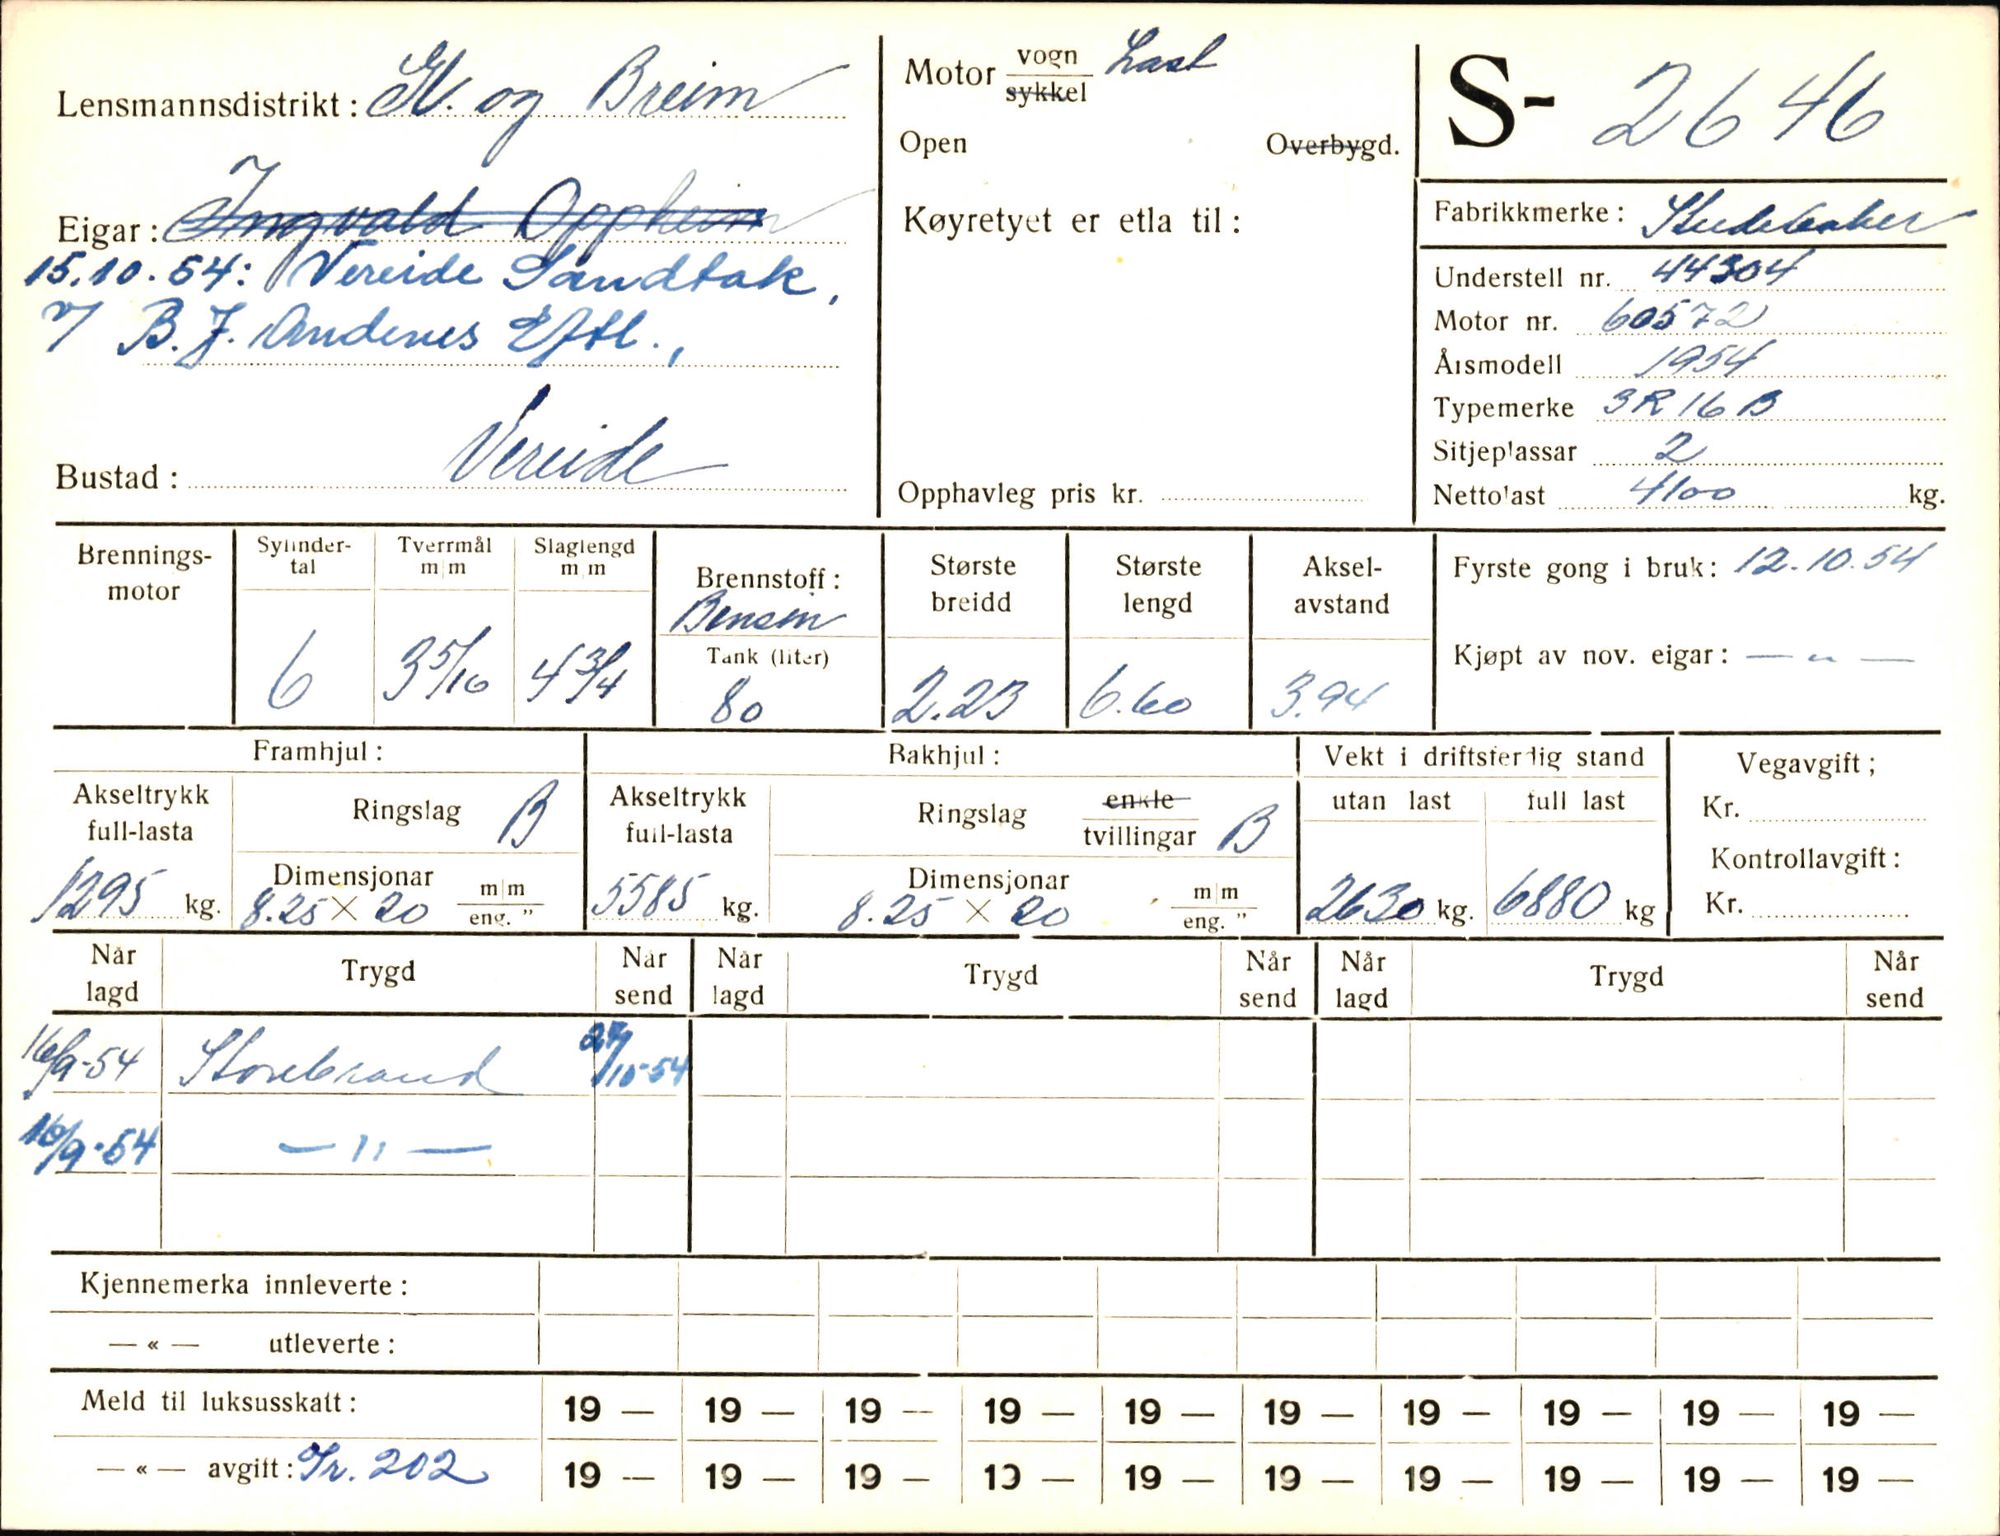 Lensmannsdistrikt: Gl. og Breim
Eigar: Ingvald Oppheim
15.10.54: Vereide Sandtak,
v/ B. J. Andenes Eftl.,
Bustad: Vereide
Motor vogn/sykkel Last
Open Overbygd.
Køyretyet er etla til:
Opphavleg pris kr.
S- 2646
Fabrikkmerke: Studebaker
Understell nr. 44304
Motor nr. 60572
Årsmodell 1954
Typemerke 3R16B
Sitjeplassar 2
Nettolast 4100 kg.
Brenningsmotor
Sylindertal 6
Tverrmål m/m 3 5/16
Slaglengd m/m 4 3/4
Brennstoff: Bensin
Tank (liter) 80
Største breidd 2.23
Største lengd 6.60
Akselavstand 3.94
Fyrste gong i bruk: 12.10.54
Kjøpt av nov. eigar: — „ —
Framhjul:
Akseltrykk full-lasta 1295 kg.
Ringslag B
Dimensjonar 8.25 × 20 m/m eng. "
Bakhjul:
Akseltrykk full-lasta 5585 kg.
Ringslag enkle tvillingar B
Dimensjonar 8.25 × 20 m/m eng. "
Vekt i driftsferdig stand
utan last 2630 kg.
full last 6880 kg
Vegavgift;
Kr.
Kontrollavgift:
Kr.
Når lagd Trygd Når send Når lagd Trygd Når send Når lagd Trygd Når send
16/9-54 Storebrand 27/10-54
16/9-54 — 11 —
Kjennemerka innleverte:
— « — utleverte:
Meld til luksusskatt: 19 — 19 — 19 — 19 — 19 — 19 — 19 — 19 — 19 — 19 —
— « — avgift: Gr. 202 19 — 19 — 19 — 19 — 19 — 19 — 19 — 19 — 19 — 19 —